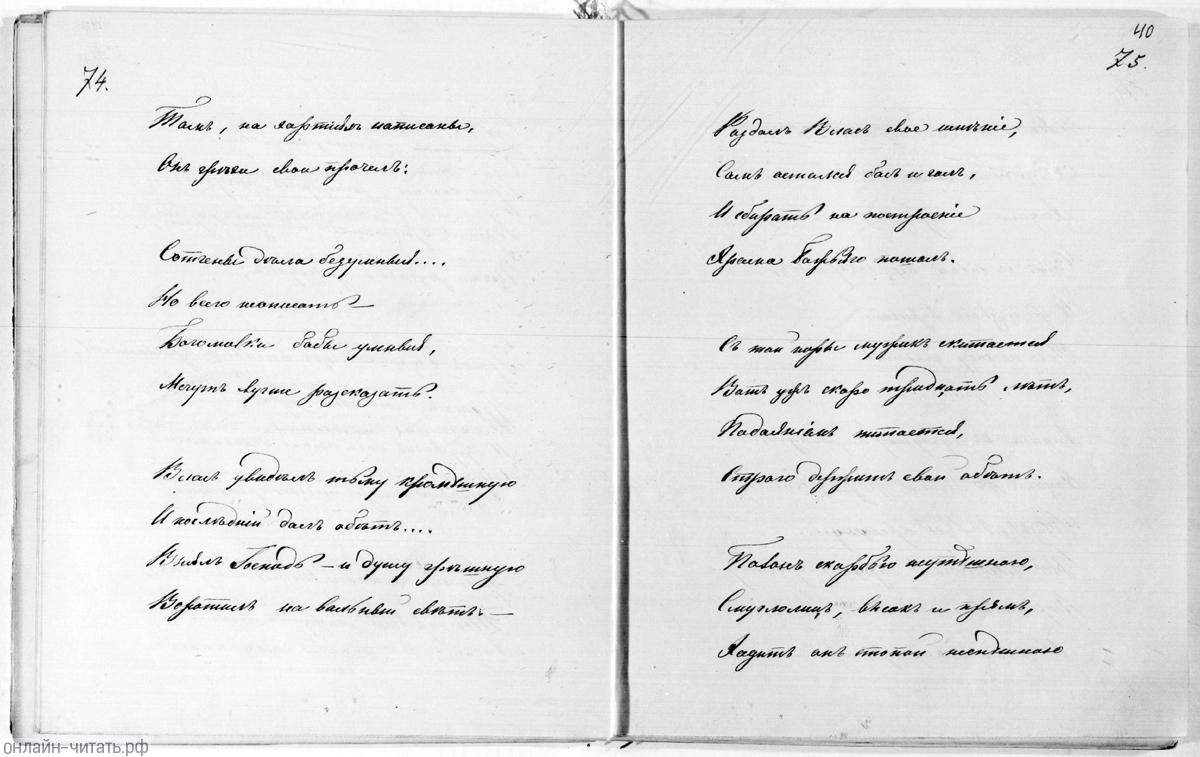 74.
Тамъ, на хартіяхъ написаны,
Онъ грѣхи свои прочелъ:
Сочтены дѣла безумныя....
Но всего не описать —
Богомолки бабы умныя,
Могутъ лучше разсказать.
Власъ увидѣлъ тьму кромѣшную
И послѣдній далъ обѣтъ....
Внялъ Господь — и душу грѣшную
Воротилъ на вольный свѣтъ. —
40
75.
Роздалъ Власъ свое имѣніе,
Самъ остался босъ и голъ,
И сбирать на построеніе
Храма Божьяго пошолъ.
Съ той поры мужикъ скитается
Вотъ ужъ скоро тридцать лѣтъ,
Подаяніемъ питается,
Строго держитъ свой обѣтъ.
Полонъ скорбью неутѣшною,
Смуглолицъ, высокъ и прямъ,
Ходитъ онъ стопой неспѣшною
онлайн-читать.рф